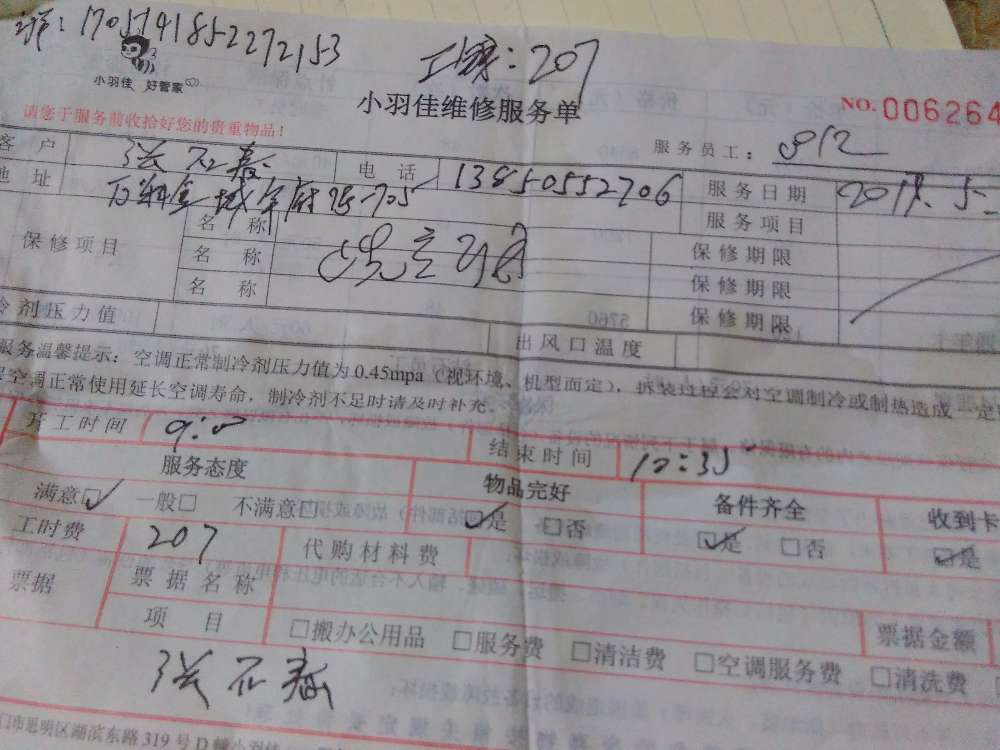 170574185227 2153
207
小羽佳 好管家
小羽佳维修服务单
NO.006264
请您于服务前收拾好您的贵重物品！
服务员工： 912
客户 电话 13850552706 服务日期
地址 服务项目
保修项目 名称 保修期限
名称 保修期限
名称 保修期限
冷剂压力值 出风口温度
服务温馨提示：空调正常制冷剂压力值为0.45mpa（视环境、机型而定），拆装过程会对空调制冷或制热造成一定
空调正常使用延长空调寿命，制冷剂不足时请及时补充。
开工时间 结束时间
服务态度 物品完好 备件齐全 收到卡
满意□ 一般□ 不满意□ □是 □否 □是 □否 □是
工时费 207 代购材料费
票据 票据名称
项目 □搬办公用品 □服务费 □清洁费 □空调服务费 □清洗费 票据金额
门市思明区湖滨东路319号D幢小羽佳